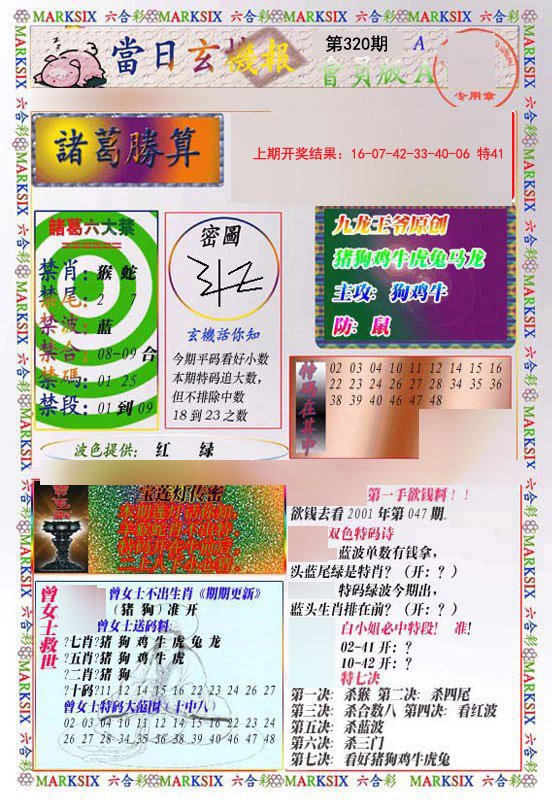 MARKSIX 六合彩 MARKSIX 六合彩 MARKSIX 六合彩 MARKSIX 六合彩 MARKSIX
當日玄機報
第320期 A
會員版A
专用章
諸葛勝算
上期开奖结果：16-07-42-33-40-06 特41
諸葛六大禁
禁肖：猴 蛇
禁尾：2 7
禁波：蓝
禁合：08-09 合
禁碼：01 25
禁段：01 到 09
密圖
玄機話你知
今期平码看好小数
本期特码追大数，
但不排除中数
18 到 23 之数
九龙王爷原创
猪狗鸡牛虎兔马龙
主攻：狗鸡牛
防：鼠
特码在其中
02 03 04 10 11 12 14 15 16
22 23 24 26 27 28 34 35 36
38 39 40 46 47 48
波色提供： 红 绿
宝莲灯传密
第一手欲钱料！！
欲钱去看 2001 年第 047 期．
双色特码诗
蓝波单数有钱拿，
头蓝尾绿是特肖？（开：？）
特码绿波今期出，
蓝头生肖排在前？（开：？）
白小姐必中特段！ 准！
02-41 开：？
10-42 开：？
特七决
第一决：杀猴 第二决：杀四尾
第三决：杀合数八 第四决：看红波
第五决：杀蓝波
第六决：杀三门
第七决：看好猪狗鸡牛虎兔
曾女士救世
曾女士不出生肖《期期更新》
（猪 狗）准 开
曾女士送码料
?七肖?猪 狗 鸡 牛 虎 兔 龙
?五肖?猪 狗 鸡 牛 虎
?二肖?猪 狗
?十码?11 12 14 15 16 22 23 24 26 27
曾女士特码大范围（十中八）
02 03 04 10 11 12 14 15 16 22 23 24
26 27 28 34 35 36 38 39 40 46 47 48
MARKSIX 六合彩 MARKSIX 六合彩 MARKSIX 六合彩 MARKSIX 六合彩 MARKSIX